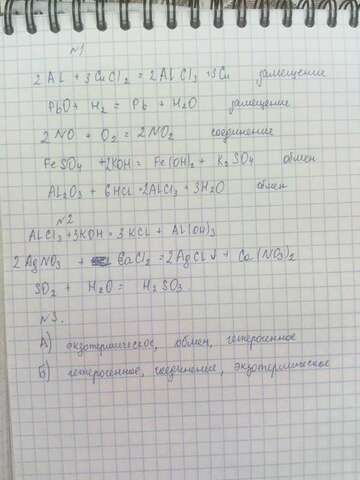 №1
2Al + 3CuCl2 = 2AlCl3 + 3Cu замещение
PbO + H2 = Pb + H2O замещение
2NO + O2 = 2NO2 соединение
FeSO4 + 2KOH = Fe(OH)2 + K2SO4 обмен
Al2O3 + 6HCl = 2AlCl3 + 3H2O обмен
№2
AlCl3 + 3KOH = 3KCl + Al(OH)3
2AgNO3 + CaCl2 = 2AgCl↓ + Ca(NO3)2
SO2 + H2O = H2SO3
№3.
А) экзотермическое, обмен, гетерогенное
Б) гетерогенное, соединение, экзотермическое